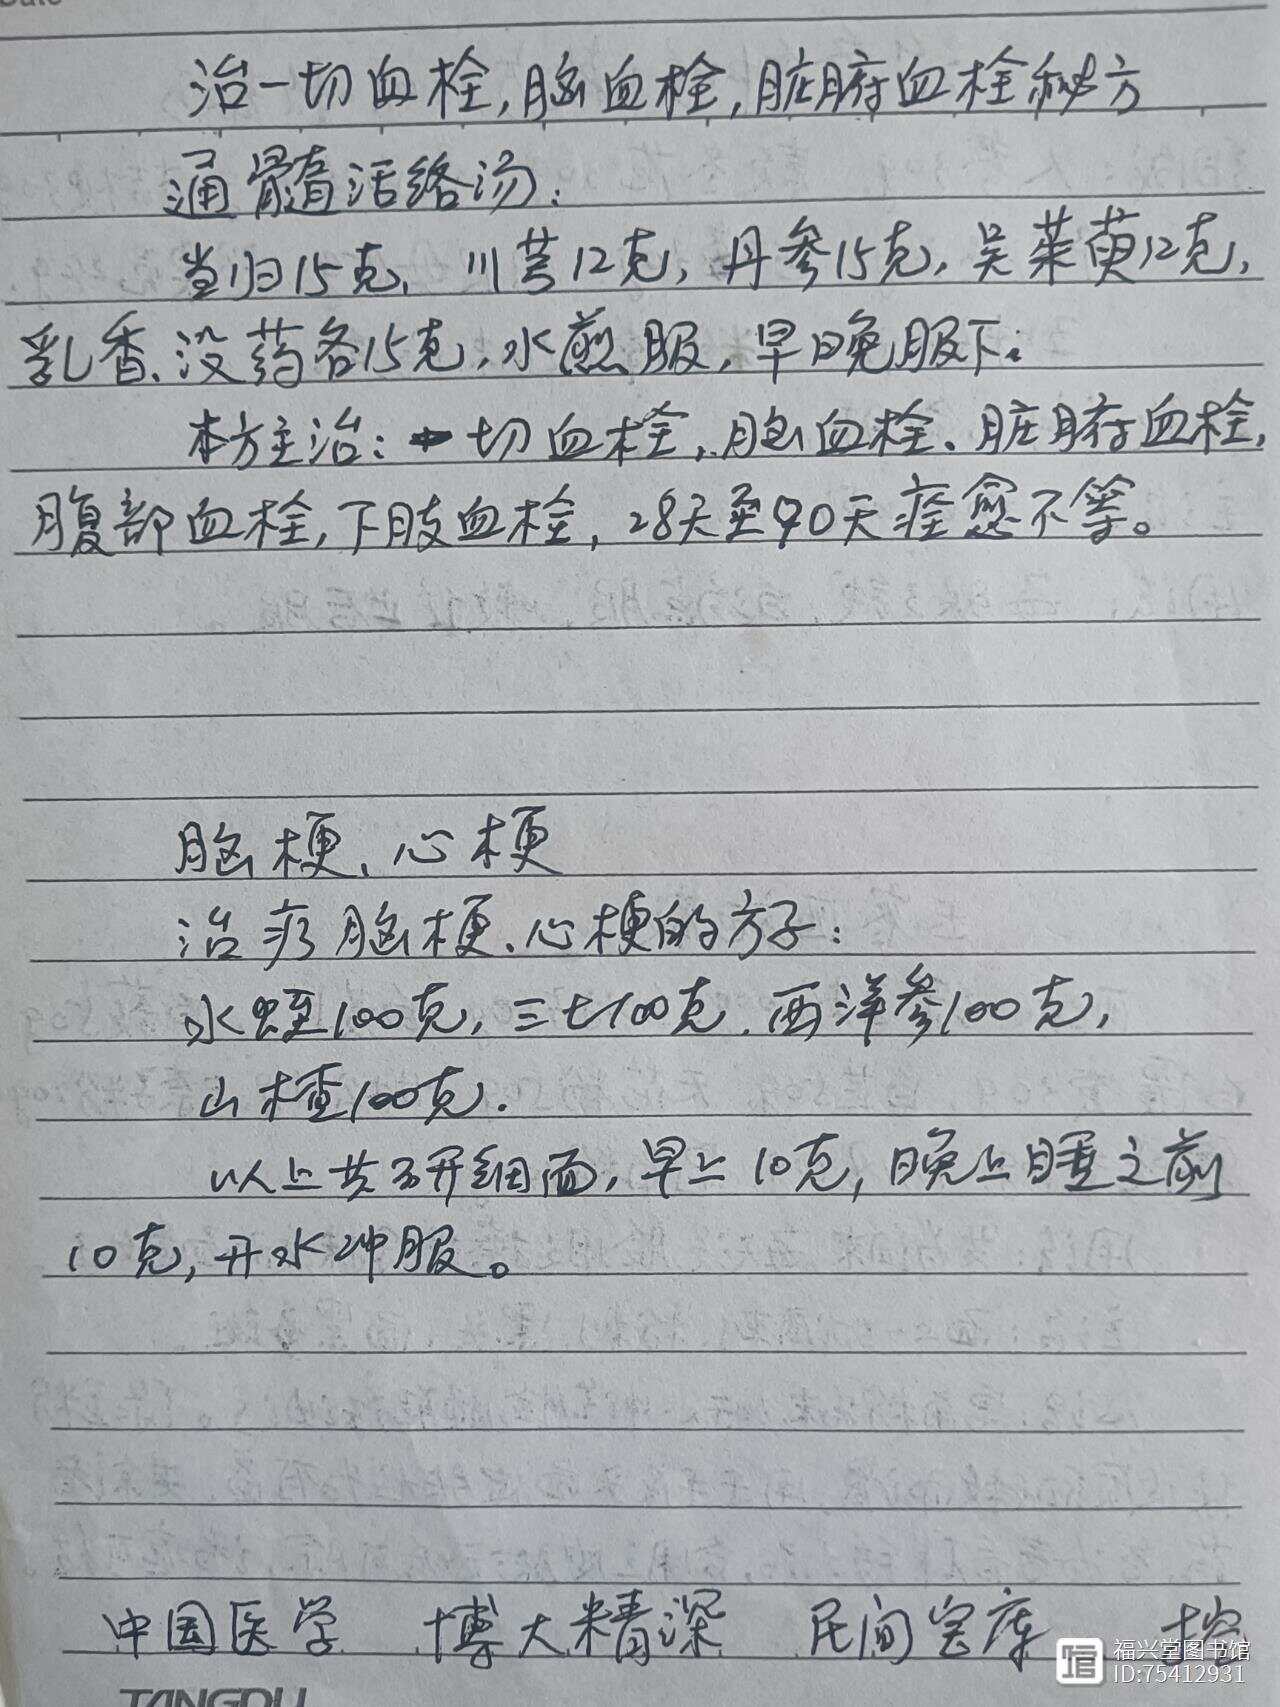 治一切血栓,脑血栓,脏腑血栓秘方
通髓活络汤:
当归15克、川芎12克,丹参15克,吴茱萸12克,
乳香、没药各15克,水煎服,早晚服下。
本方主治:一切血栓,脑血栓、脏腑血栓,
腹部血栓,下肢血栓,28天至90天痊愈不等。
脑梗、心梗
治疗脑梗、心梗的方子:
水蛭100克,三七100克.西洋参100克,
山楂100克.
以上共研细面,早上10克,晚上睡之前
10克,开水冲服。
中国医学 博大精深 民间宝库
福兴堂图书馆
ID:75412931
TANGDU